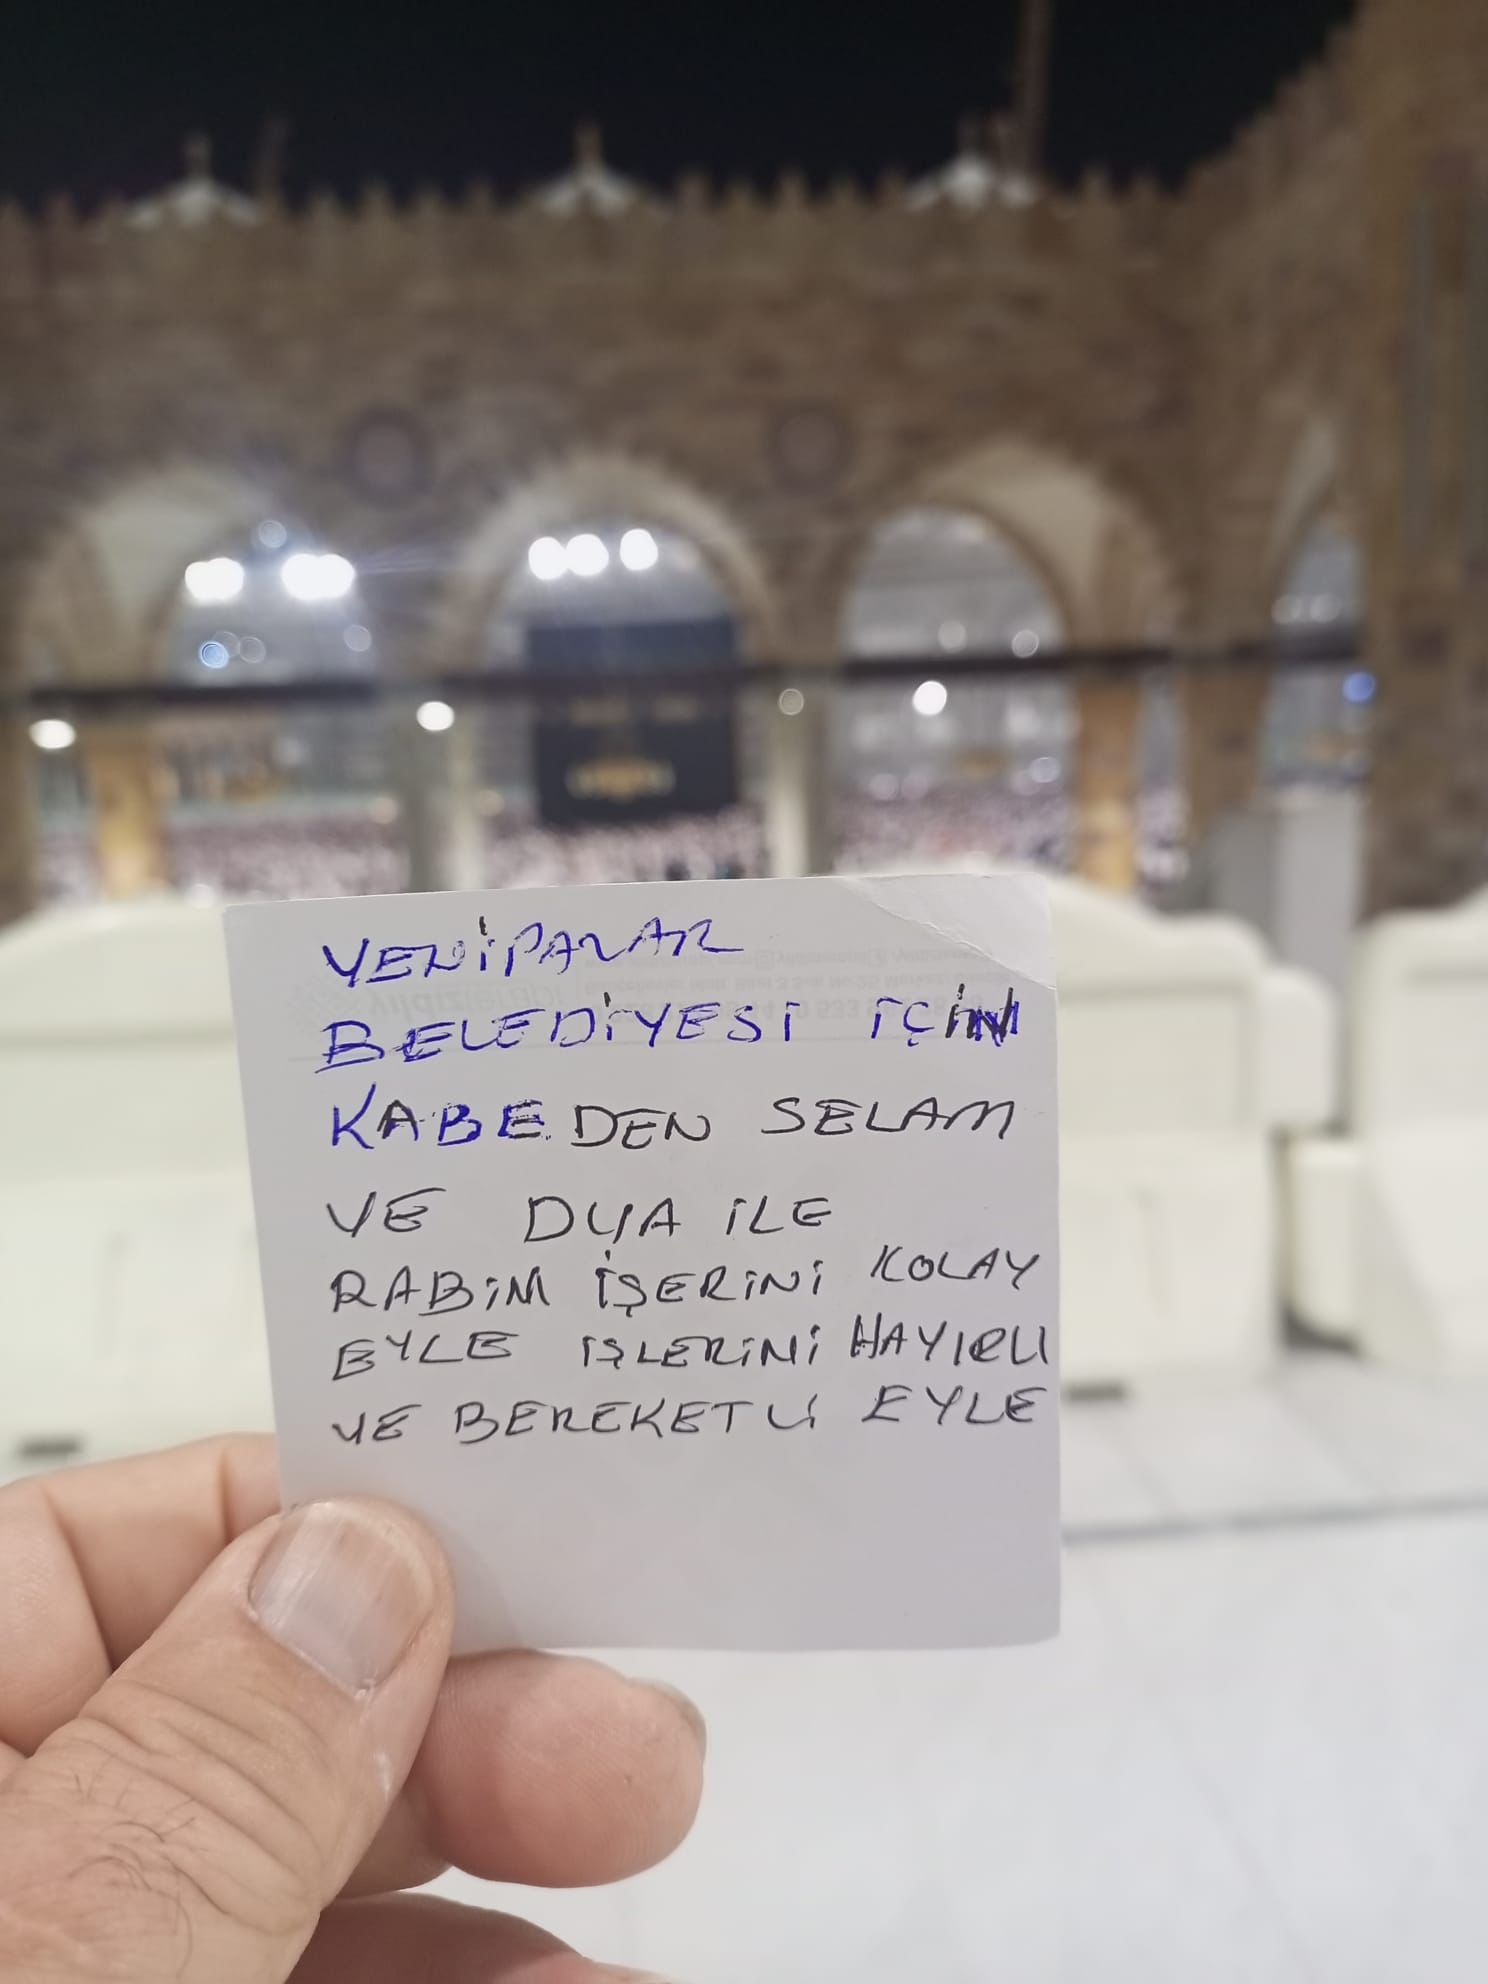 YENİPAZAR
BELEDİYESİ İÇİN
KABEDEN SELAM
VE DUA İLE
RABİM İŞERİNİ KOLAY
EYLE İŞLERİNİ HAYIRLI
VE BEREKETLİ EYLE